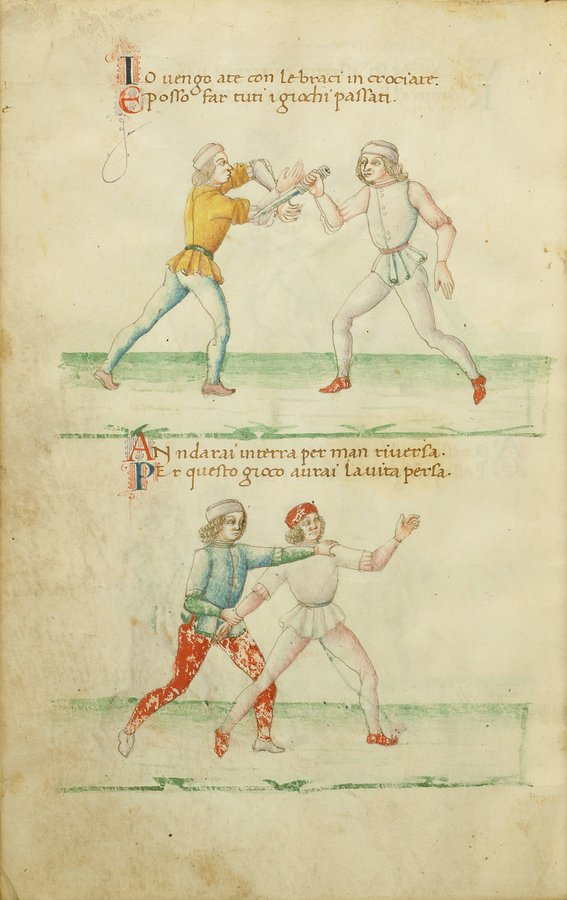 IO uengo ate con le braci in crociate.
E posso far tuti i giochi passati.
AN ndarai in terra per man riuersa.
PEr questo gioco aurai la uita persa.